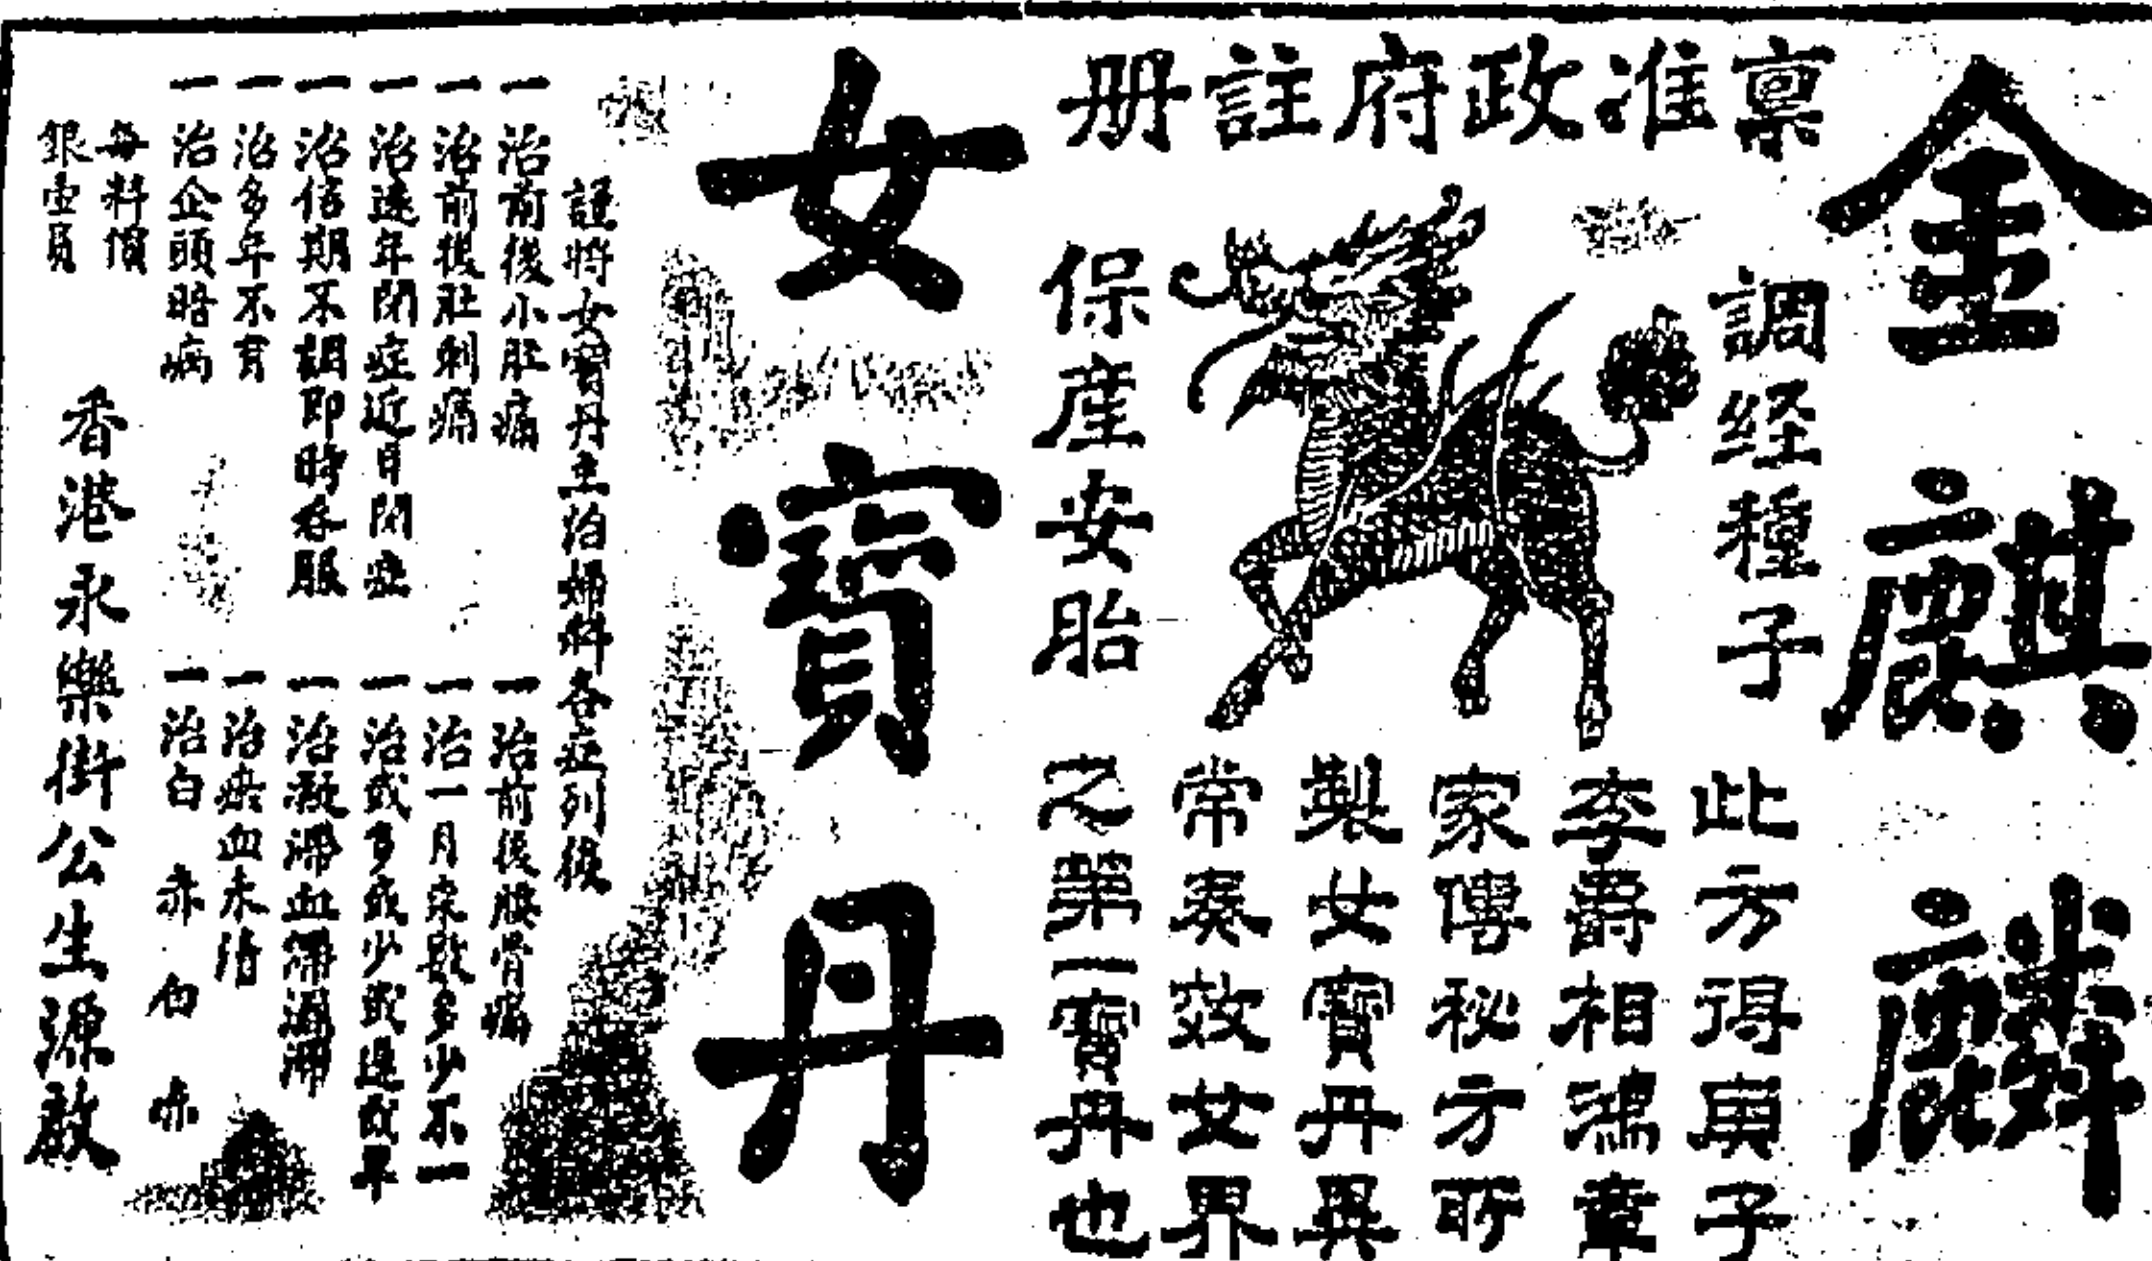 金麒麟
稟准政府註册
調経種子
保産安胎
此方得庚子
李爵相鴻章
家傳秘方所
製女寶丹異
常奏效女界
之第一寶丹也
女寶丹
謹將女寶丹主治婦科各症列後
一治前後小肚痛
一治前後肚刺痛
一治遠年閉症近日閉症
一治信期不調即時吞服
一治多年不育
一治企頭暗病
一治前後腰骨痛
一治一月來數多少不一
一治或多或少或遲或早
一治凝滯血滯濕滯
一治瘀血未清
一治白赤白赤
每料價
銀壹員
香港永樂街公生源啟